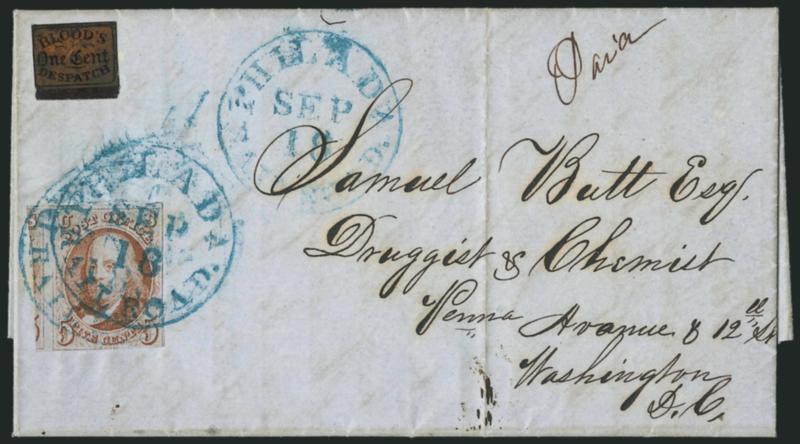 BLOOD'S
One Cent
DESPATCH
PHILADA
SEP
18
Paid
Samuel Butt Esq.
Druggist & Chemist
Penna Avenue & 12th St
Washington
D. C.
PHILADA
SEP
18
POST OFFICE
5 5